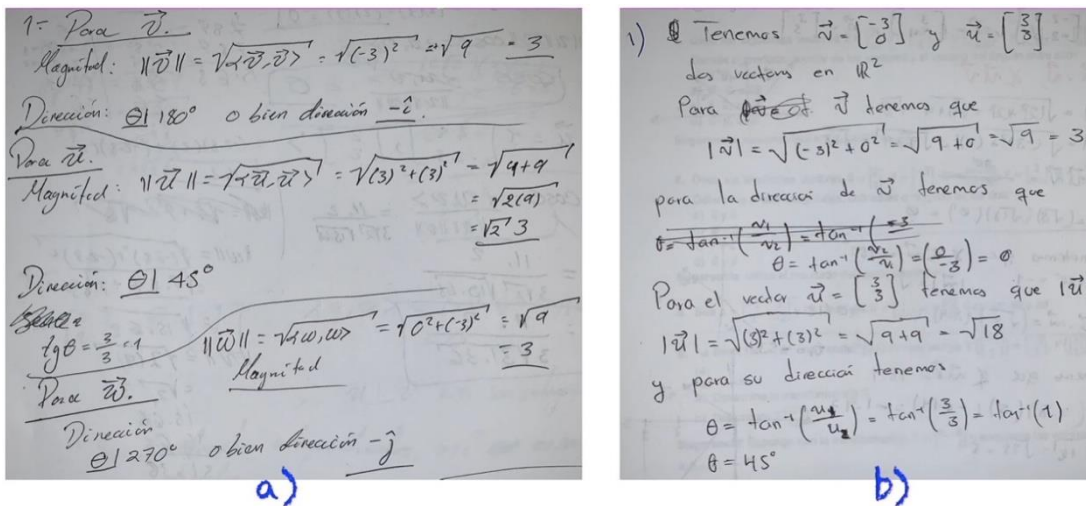 1= Para v⃗.
Magnitud: ||v⃗|| = √<v⃗,v⃗> = √(-3)² = √9 = 3
Dirección: θ| 180° o bien dirección -î.
Para u⃗.
Magnitud: ||u⃗|| = √<u⃗,u⃗> = √(3)²+(3)² = √9+9
= √2(9)
= √2 3
Dirección: θ| 45°
tgθ = 3/3 = 1
||w⃗|| = √<w,w> = √0²+(-3)² = √9
= 3
Magnitud
Para w⃗.
Dirección
θ| 270° o bien dirección -ĵ
a)
1) Tenemos v⃗ = [-3 0] y u⃗ = [3 3]
dos vectores en ℝ²
Para v⃗ tenemos que
|v⃗| = √(-3)²+0² = √9+0 = √9 = 3
para la direccion de v⃗ tenemos que
θ = tan⁻¹(v₁/v₂) = tan⁻¹(-3
θ = tan⁻¹(v₂/v₁) = (0/-3) = 0
Para el vector u⃗ = [3 3] tenemos que |u⃗|
|u⃗| = √(3)²+(3)² = √9+9 = √18
y para su direccion tenemos
θ = tan⁻¹(u₁/u₂) = tan⁻¹(3/3) = tan⁻¹(1)
θ = 45°
b)